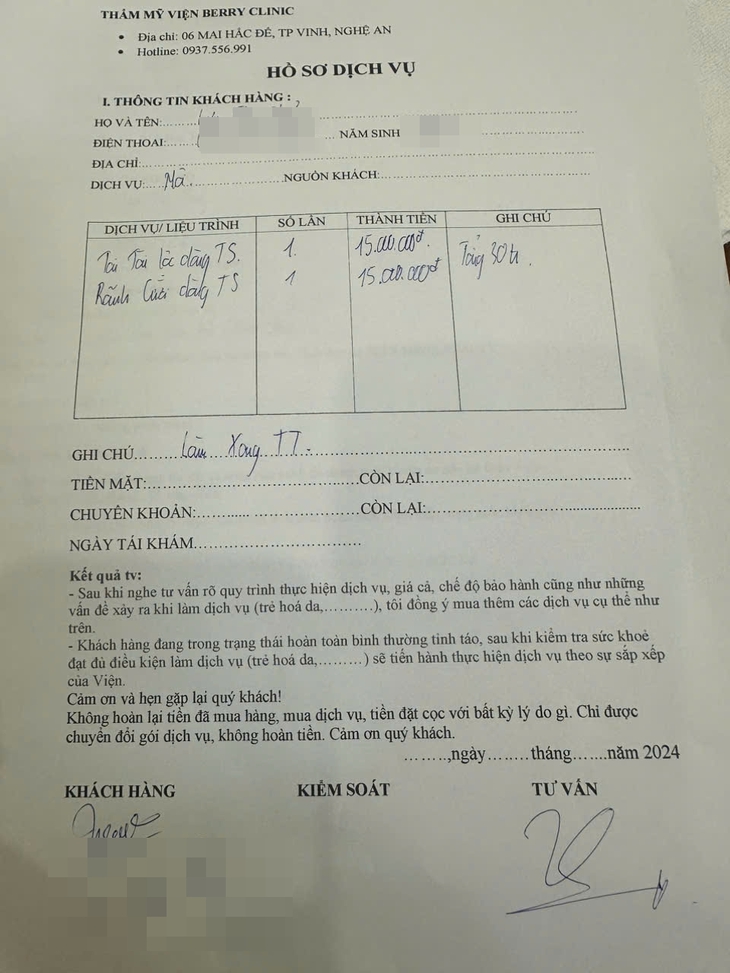 THẨM MỸ VIỆN BERRY CLINIC
• Địa chỉ: 06 MAI HẮC ĐẾ, TP VINH, NGHỆ AN
• Hotline: 0937.556.991
HỒ SƠ DỊCH VỤ
I. THÔNG TIN KHÁCH HÀNG :
HỌ VÀ TÊN:
ĐIỆN THOẠI: NĂM SINH
ĐỊA CHỈ:
DỊCH VỤ: NGUỒN KHÁCH:
DỊCH VỤ/ LIỆU TRÌNH SỐ LẦN THÀNH TIỀN GHI CHÚ
Tài lộc dáng TS. 1. 15.000.000đ. Tổng 30 tr.
Rãnh Cười dáng TS 1 15.000.000đ
GHI CHÚ Làm Xong TT.
TIỀN MẶT: CÒN LẠI:
CHUYỂN KHOẢN: CÒN LẠI:
NGÀY TÁI KHÁM
Kết quả tv:
- Sau khi nghe tư vấn rõ quy trình thực hiện dịch vụ, giá cả, chế độ bảo hành cũng như những
vấn đề xảy ra khi làm dịch vụ (trẻ hoá da,..........), tôi đồng ý mua thêm các dịch vụ cụ thể như
trên.
- Khách hàng đang trong trạng thái hoàn toàn bình thường tỉnh táo, sau khi kiểm tra sức khoẻ
đạt đủ điều kiện làm dịch vụ (trẻ hoá da,.........) sẽ tiến hành thực hiện dịch vụ theo sự sắp xếp
của Viện.
Cảm ơn và hẹn gặp lại quý khách!
Không hoàn lại tiền đã mua hàng, mua dịch vụ, tiền đặt cọc với bất kỳ lý do gì. Chỉ được
chuyển đổi gói dịch vụ, không hoàn tiền. Cảm ơn quý khách.
........,ngày........tháng.......năm 2024
KHÁCH HÀNG KIỂM SOÁT TƯ VẤN